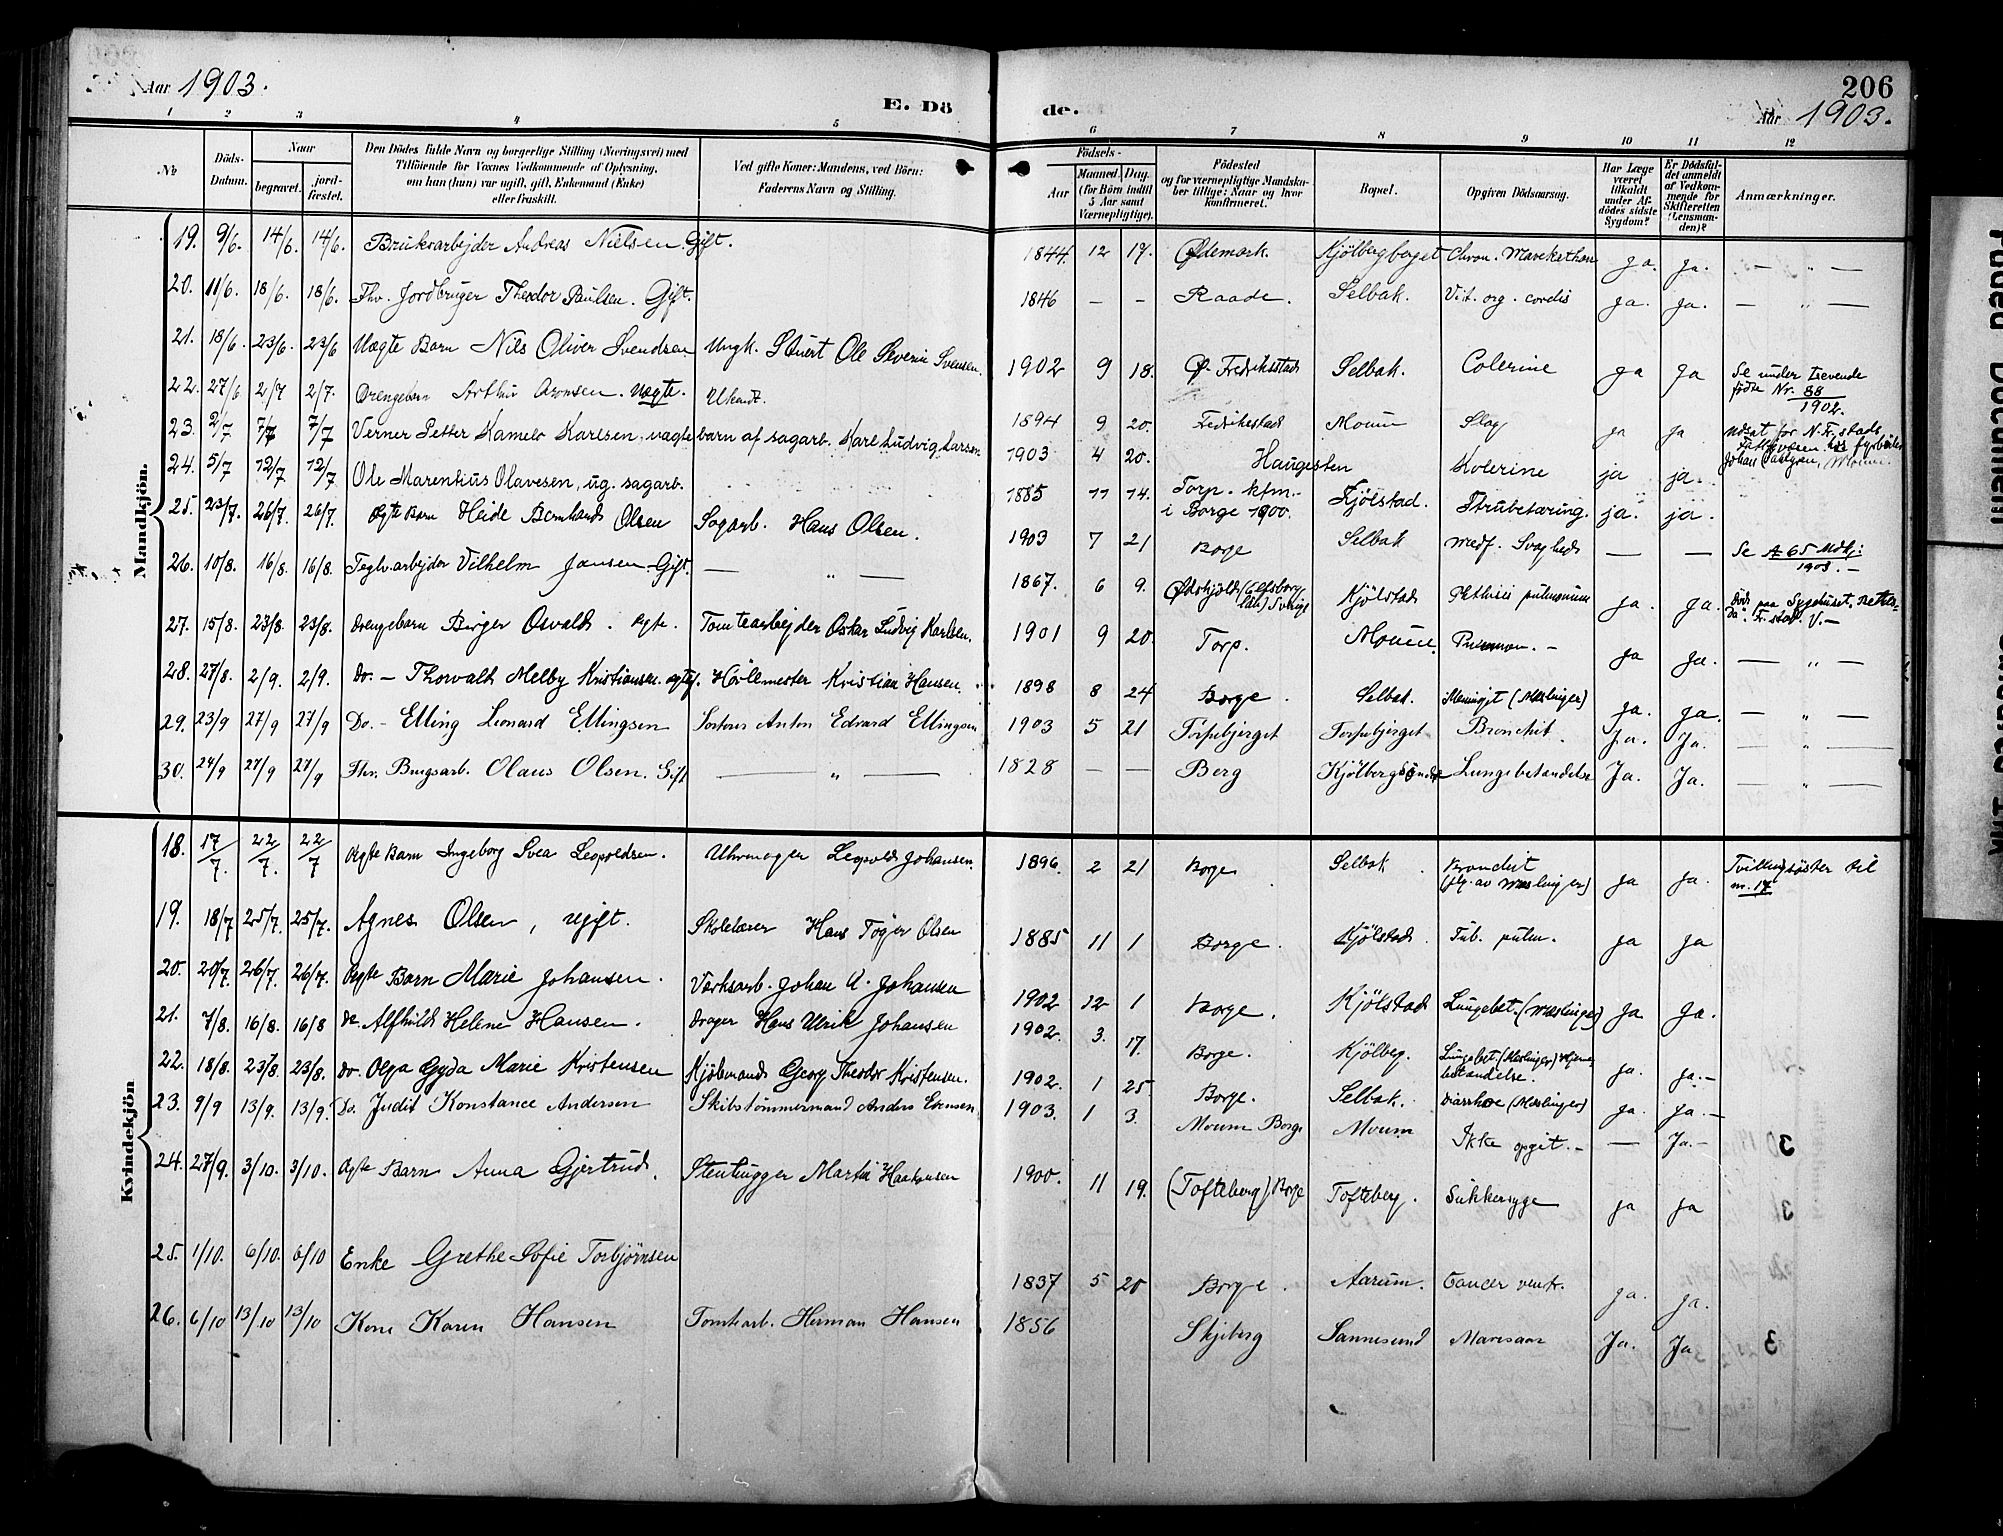 Aar 1903.
E. Dö
de.
206
Aar 1903.
1 2 3 4 5 6 7 8 9 10 11 12
No
Döds-Datum.
Naar
begravet.
jord-fæstet.
Den Dödes fulde Navn og borgerlige Stilling (Næringsvei) med
Tilföiende for Voxnes Vedkommende af Oplysning,
om han (hun) var ugift, gift, Enkemand (Enke)
eller fraskilt.
Ved gifte Koner: Mandens, ved Börn:
Faderens Navn og Stilling.
Födsels-
Aar
Maaned Dag.
(for Börn indtil
5 Aar samt
Værnepligtige).
Födested
og for værnepligtige Mandska-
ber tillige: Naar og hvor
konfirmeret.
Bopæl.
Opgiven Dödsaarsag.
Har Læge
været
tilkaldt
under Af-
dödes sidste
Sygdom?
Er Dödsfal-
det anmeldt
af Vedkom-
mende for
Skifteretten
(Lensman-
den)?
Anmærkninger.
Mandkjön.
19. 9/6. 14/6. 14/6. Bruksarbejder Andreas Nielsen. Gift. 1844. 12 19. Ødemark. Kjölbergberget Chron. ja. ja. — " —
20. 11/6. 18/6. 18/6. Fhv. Jordbruger Theodor Paulsen. Gift. 1846 — — Raade. Selbak. Vit. org. cordis ja. ja. — " —
21. 18/6. 23/6. 23/6 Uægte Barn Nils Oliver Svendsen Ungk. Stuert Ole Severin Svensen. 1902 9 18. Ø. Fredriksstad Selbak. Colerine ja ja Se under levende
fødte Nr. 88
1902.
22. 27/6 2/7 2/7. Drengebarn Arthur Aronsen. uægte. Ukendt. 1894 9 20. Fredrikstad Moum Slag ja ja
23. 2/7 7/7 7/7 Verner Petter Kamelo Karlsen, uægte barn af sagarb. Karl Ludvig Larsen 1903 4 20. Haugesten Kolerine ja ja.
24. 5/7 12/7 12/7 Ole Marentius Olavesen, ug. sagarb. 1885 11 14. Torp. kfm.
i Borge 1900. Kjölstad. Strubetæring. ja. ja.
25. 23/7. 26/7. 26/7. Ægte Barn Heide Bernhard Olsen Sagarb. Hans Olsen. 1903 7 21 Borge Selbak medf. Svaghed — — Se A 65 Mdkj:
1903. —
26. 10/8. 16/8. 16/8. Teglv.arbejder Vilhelm Jansen. Gift. — " — 1867. 6 9. Kjölstad Phthisis pulmonum ja. ja.
27. 15/8. 23/8. 23/8. Drengebarn Birger Osvald. ægte. Tomtearbejder Oskar Ludvig Karlsen. 1901 9 20. Torp. Moum. Pneumon. — ja ja. — " —
28. 27/8. 2/9. 2/9. Do. — Thorvald Melby Kristiansen. ægte. Hövlemester Kristian Hansen. 1898 8 24 Borge. Selbak. Meningit (Meslinger) ja. ja. — " —
29. 23/9 27/9 27/9 Do. — Elling Leonard Ellingsen Anton Edvard Ellingsen 1903 5 21 Torpebjerget Torpebjerget Bronchit. Ja. Ja. — " —
30. 24/9 27/9 27/9 Fhv. Brugsarb. Olaus Olsen. Gift — " — 1828 — — Berg Lungebetændelse Ja. Ja. — " —
Kvindekjön
18. 17/7. 22/7. 22/7 Ægte Barn Ingeborg Svea Leopoldsen. Uhrmager Leopold Johansen. 1896. 2 21 Borge Selbak Bronchit
(flg. av meslinger) ja ja. Tvillingsøster til
nr. 17
19. 18/7 25/7. 25/7. Agnes Olsen, ugift. Skolelærer Hans Töger Olsen 1885 11 1 Borge. Kjölstad. Tub. pulm. ja ja
20. 20/7. 26/7. 26/7. Ægte Barn Marie Johansen. Værksarb. Johan A. Johansen 1902 12 1 Borge. Kjölstad Lungebet. (meslinger) ja ja.
21. 7/8. 16/8. 16/8 do. Alfhild Helene Hansen. Drager Hans Ulrik Johansen 1902. 3. 17. Borge. Kjölberg. Lungebet. (Meslinger) Hjerne-
betændelse. ja. ja.—
22. 18/8. 23/8. 23/8. do. Olga Gyda Marie Kristensen Kjöbmand Georg Theodor Kristensen. 1902. 1 25. Borge. Selbak. Diarrhoe (Meslinger) ja. ja.—
23. 9/9 13/9. 13/9. Do. Judit Konstance Andersen Skibstömmermand Anders Evensen. 1903. 1 3. Moum Borge Moum Ikke opgit. — — Ja.—
24. 27/9. 3/10. 3/10. Ægte Barn Anna Gjertrud. Stenhugger Martin Haakonsen 1900. 11 19. (Tofteberg) Borge Tofteberg. Sukkersyge ja ja
25. 1/10. 6/10. 6/10 Enke Grethe Sofie Torbjörnsen 1837 5 20 Borge. Aarum. Cancer ventr. ja. ja.
26. 6/10 13/10 13/10 Kone Karen Hansen Tomtearb. Herman Hansen 1856 Skjeberg Sannesund Mavesaar Ja. Ja